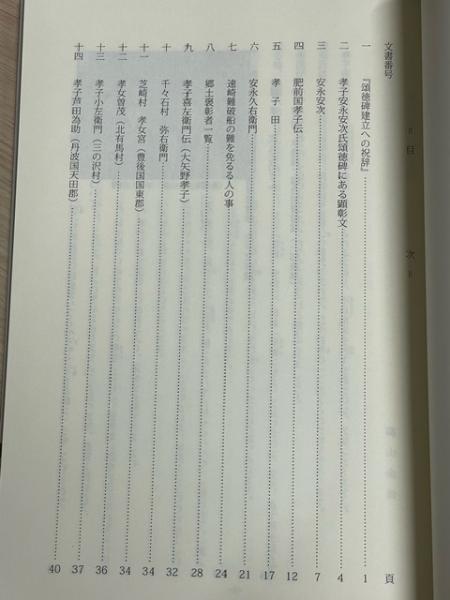 〃目 次〃
文書番号 頁
一 『頌徳碑建立への祝辞』 1
二 孝子安永安次氏頌徳碑にある顕彰文 4
三 安永安次 7
四 肥前国孝子伝 12
五 孝子田 17
六 安永久右衛門 21
七 速崎難破船の難を免るる人の事 24
八 郷土褒彰者一覧 28
九 孝子喜左衛門伝(大矢野孝子) 32
十 千々石村 弥右衛門 34
十一 芝崎村 孝女宮(豊後国国東郡) 34
十二 孝女曽茂(北有馬村) 36
十三 孝子小左衛門(三の沢村) 37
十四 孝子芦田為助(丹波国天田郡) 40